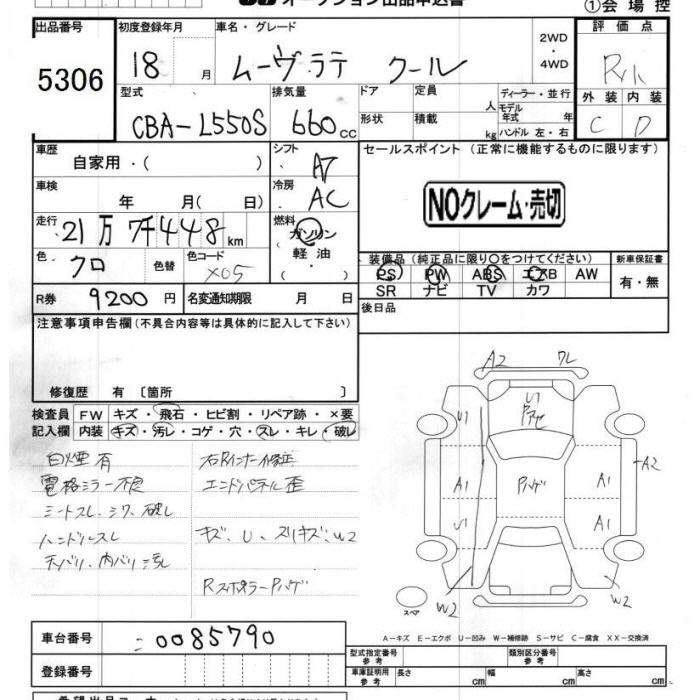 オークション出品申込書
①会場控
出品番号
5306
初度登録年月
18 月
車名・グレード
ムーヴラテ クール
2WD
・
4WD
評価点
外装 内装
C D
型式
CBA-L550S
排気量
660 cc
ドア
形状
定員
人
積載
kg
ディーラー・並行
モデル年式 年
ハンドル 左・右
車歴
自家用・( )
シフト
AT
車検
年 月( 日)
冷房
AC
走行
21万7千448km
燃料
ガソリン
軽油
・
色
クロ
色替
色コード
X05
R券 9200円
名変通知期限 月 日
セールスポイント (正常に機能するものに限ります)
NOクレーム・売切
装備品(純正品に限り○をつけてください)
PS PW ABS エアB AW
SR ナビ TV カワ
新車保証書
有・無
後日品
注意事項申告欄(不具合内容等は具体的に記入して下さい)
修復歴 有〔箇所 〕
検査員記入欄
FW キズ・飛石・ヒビ割・リペア跡・×要
内装 キズ・汚レ・コゲ・穴・スレ・キレ・破レ
白煙有
電格ミラー不良
シートスレ、シワ、破レ
ハンドルスレ
天バリ、内バリ汚レ
右Rインナー修正
エンドパネル歪
キズ、U、スリキズ、W2
RスポイラーPハゲ
A2 ワレ
U1
U1
A1
U1
Pハゲ
A1
A1
A2
W2
W2
スペア
A-キズ E-エクボ U-凹み W-補修跡 S-サビ C-腐食 XX-交換済
車台番号
0085790
登録番号
型式指定番号
参考
類別区分番号
参考
車庫証明用
参考
長さ cm
幅 cm
高さ cm